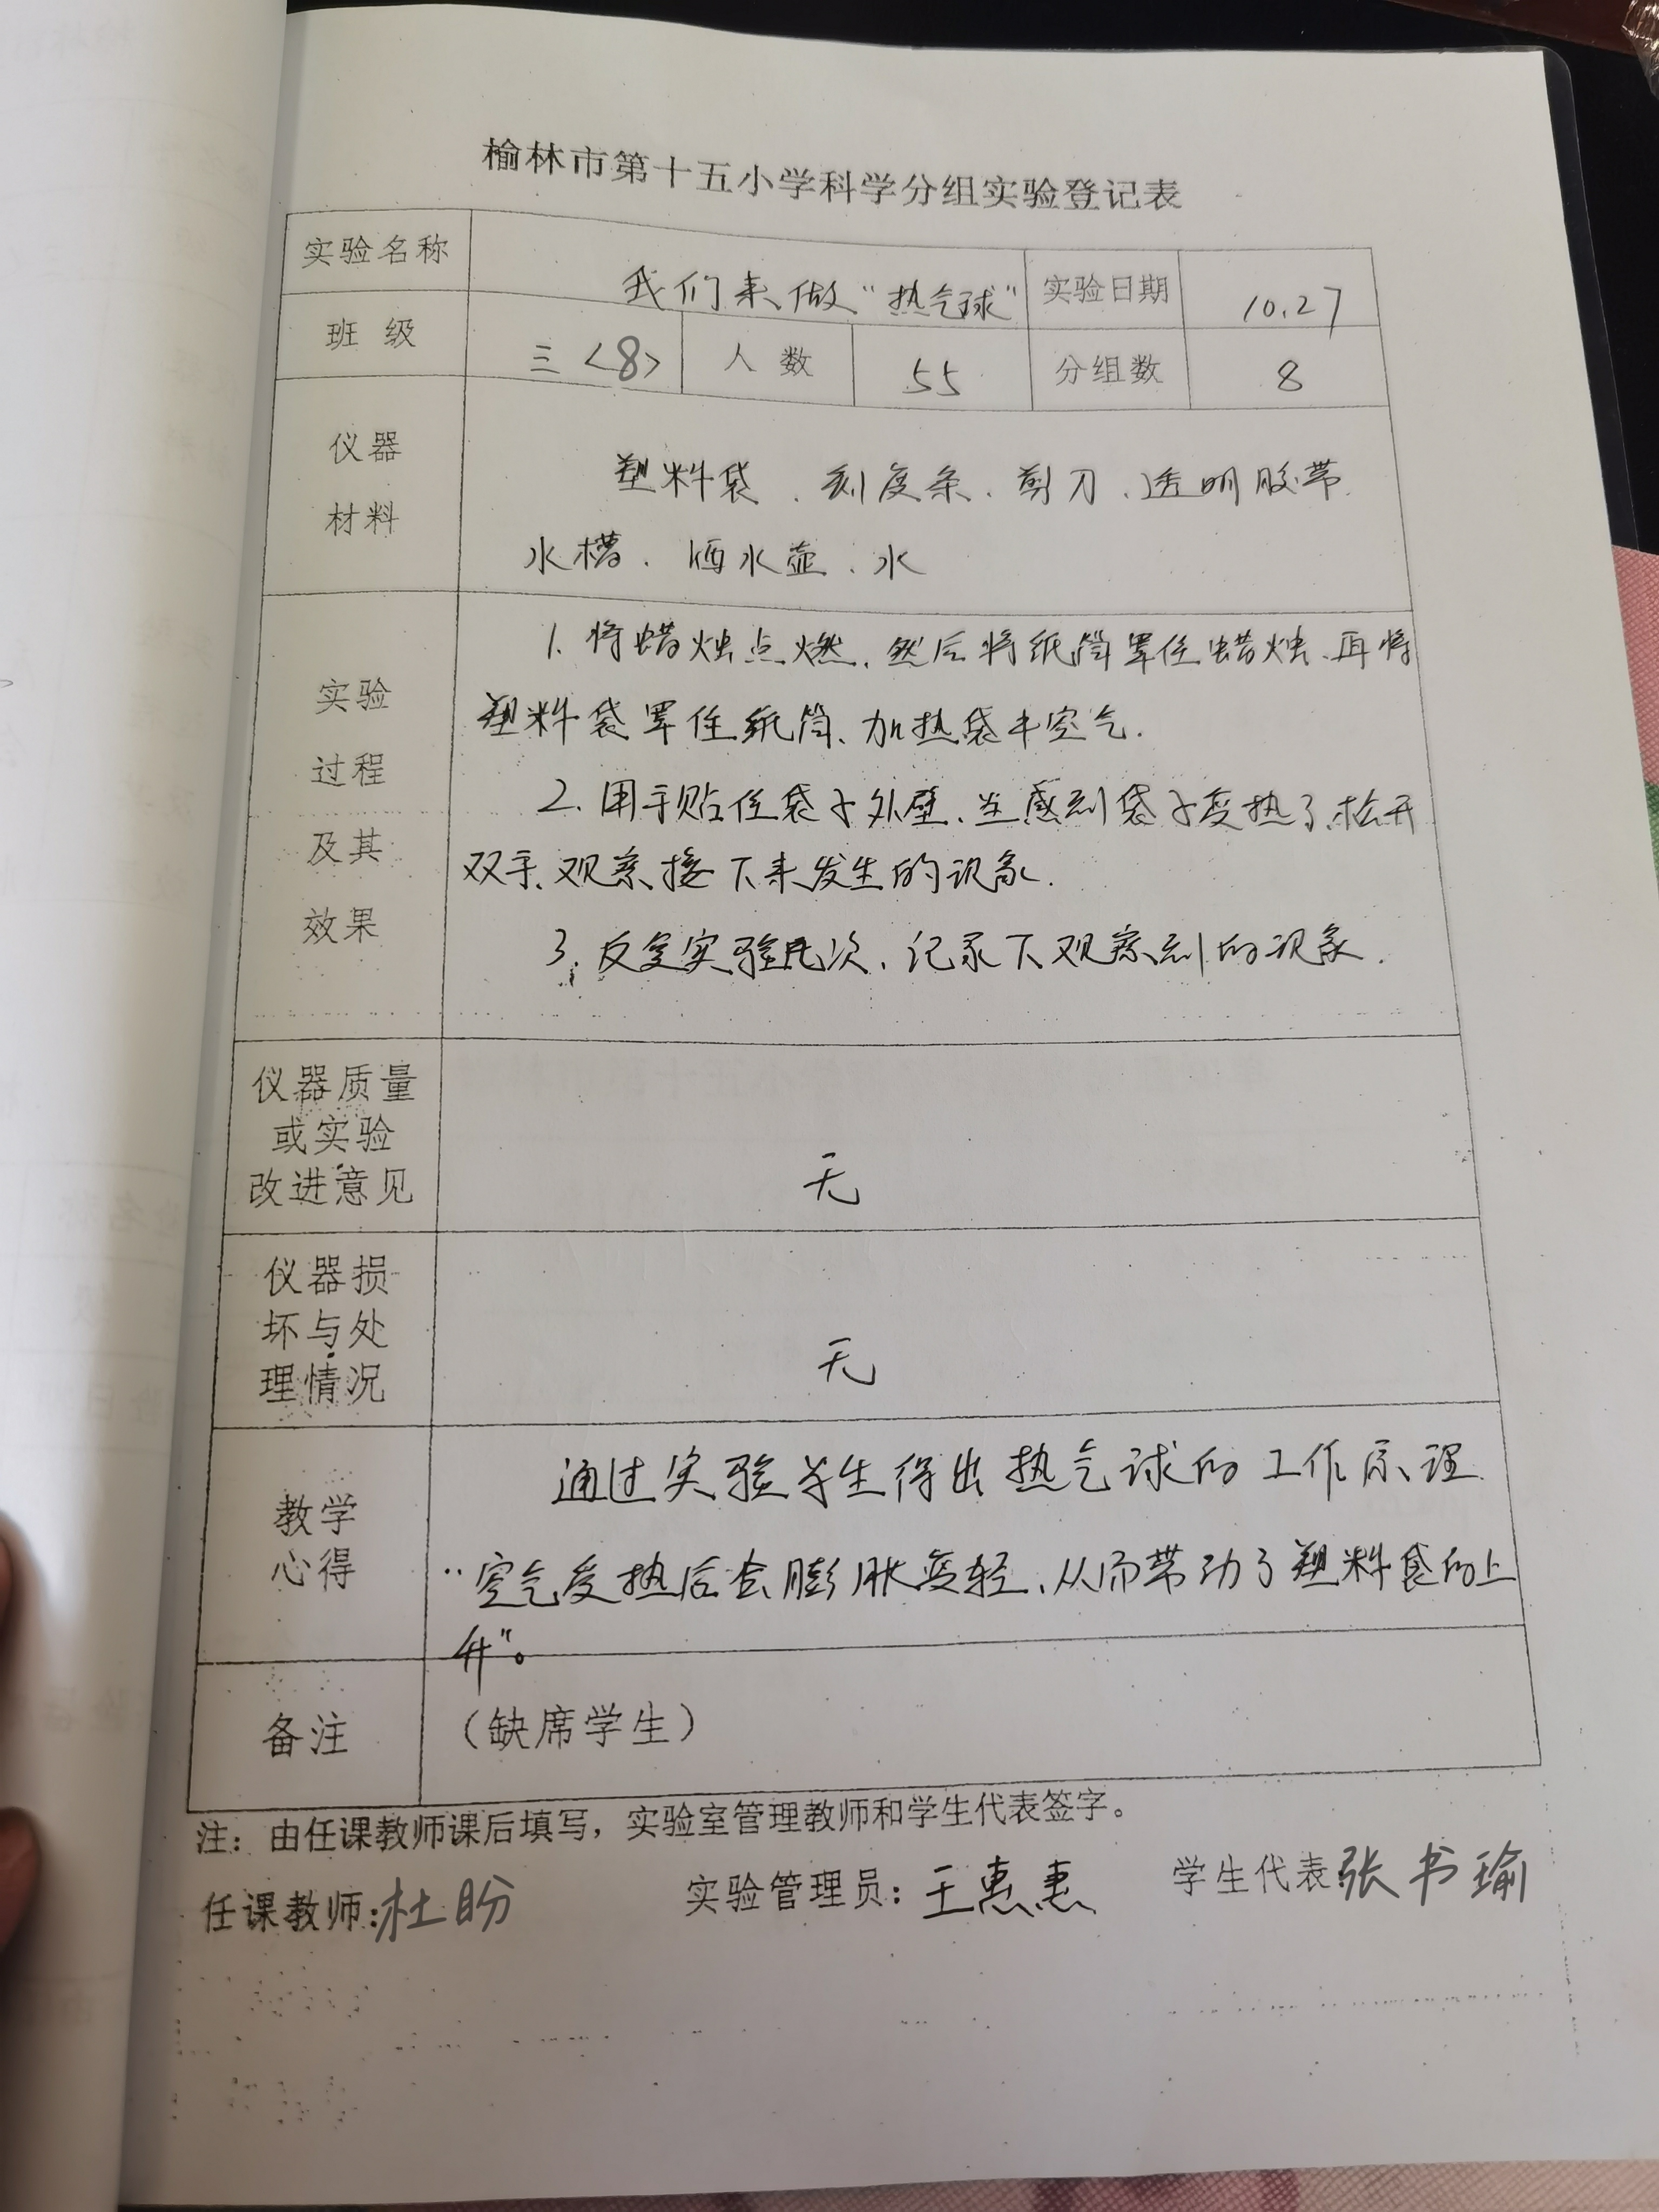 榆林市第十五小学科学分组实验登记表
实验名称 我们来做“热气球” 实验日期 10.27
班 级 三<8> 人 数 55 分组数 8
仪器
材料
塑料袋、刻度条、剪刀、透明胶带
水槽、洒水壶、水
实验
过程
及其
效果
1. 将蜡烛点燃、然后将纸筒罩住蜡烛、再将
塑料袋罩住纸筒、加热袋中空气.
2. 用手贴住袋子外壁、当感到袋子变热了、松开
双手、观察接下来发生的现象.
3. 反复实验几次、记录下观察到的现象.
仪器质量
或实验
改进意见
无
仪器损
坏与处
理情况
无
教学
心得
通过实验学生得出热气球的工作原理
“空气受热后会膨胀变轻、从而带动了塑料袋的上
升”。
备注 （缺席学生）
注：由任课教师课后填写，实验室管理教师和学生代表签字。
任课教师:杜盼 实验管理员：王惠惠 学生代表张书瑜